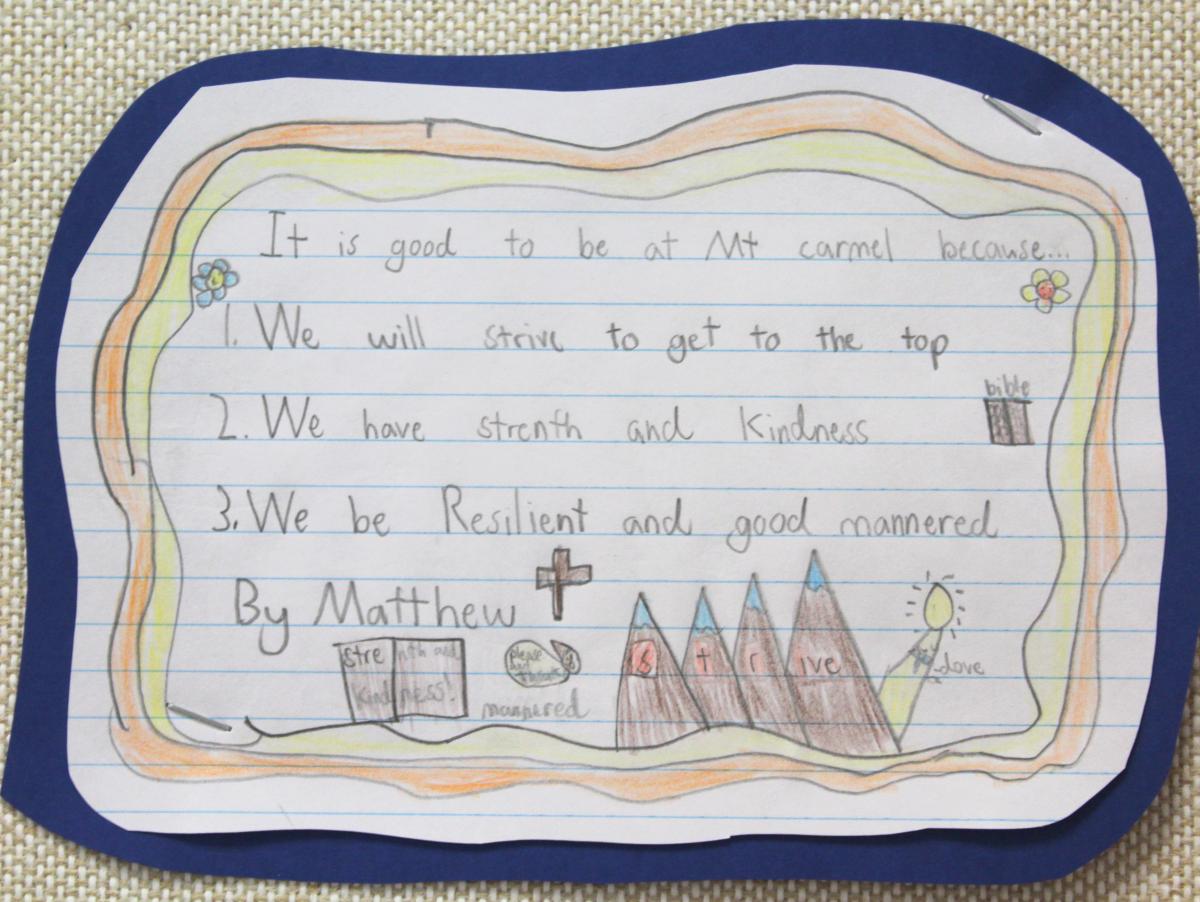 It is good to be at Mt carmel because...
1. We will strive to get to the top
2. We have strenth and Kindness
bible
3. We be Resilient and good mannered
By Matthew
strenth and
kindness!
please
and
thanks
mannered
strive
Dove